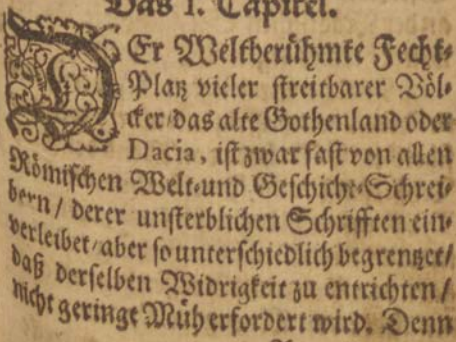 Das 1. Capitel.
DEr Weltberühmte Fecht-
Platz vieler streitbarer Völ-
cker/das alte Gothenland oder
Dacia, ist zwar fast von allen
Römischen Welt-und Geschicht-Schrei-
bern / derer unsterblichen Schrifften ein-
verleibet/aber so unterschiedlich begrentzet/
daß derselben Widrigkeit zu entrichten /
nicht geringe Müh erfordert wird. Denn